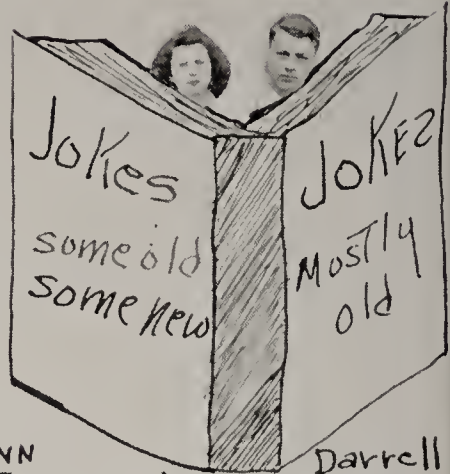 Jokes
some old
some new
JoKEs
Mostly
old
Darrell